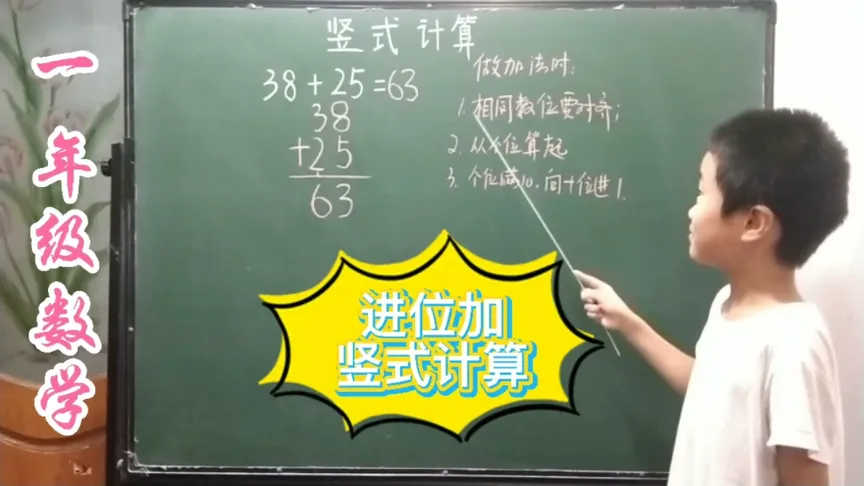 一年级数学
竖式计算
38+25=63
38
+25
63
做加法时:
1.相同数位要对齐;
2.从个位算起
3.个位满10,向十位进1.
进位加
竖式计算